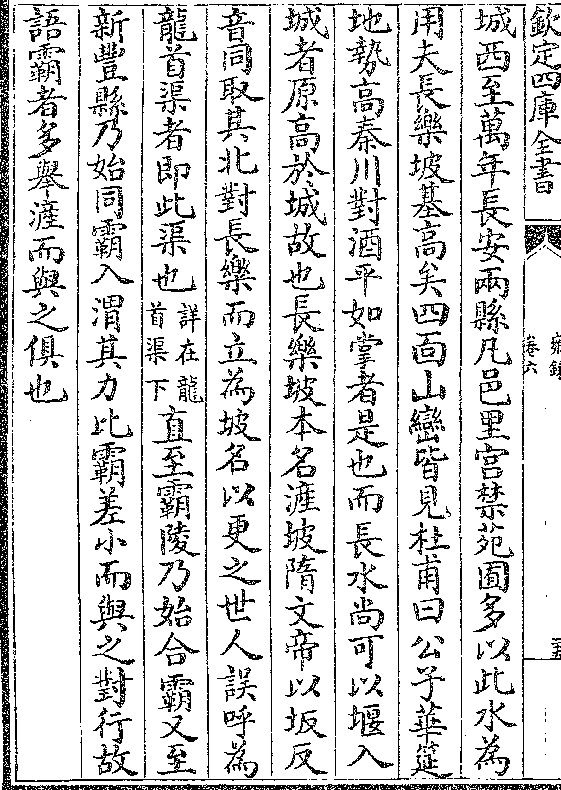 欽定四庫全書
雍録
卷六
城西至萬年長安兩縣凡邑里宫禁苑囿多以此水為
用夫長樂坡基高矣四靣山巒皆見杜甫曰公子華筵
地勢高秦川對酒平如掌者是也而長水尚可以堰入
城者原高於城故也長樂坡本名滻坡隋文帝以坂反
音同取其北對長樂而立為坡名以更之世人誤呼為
龍首渠者即此渠也詳在龍首渠下直至霸陵乃始合霸又至
新豐縣乃始同霸入渭其力比霸差小而與之對行故
語霸者多舉滻而與之俱也